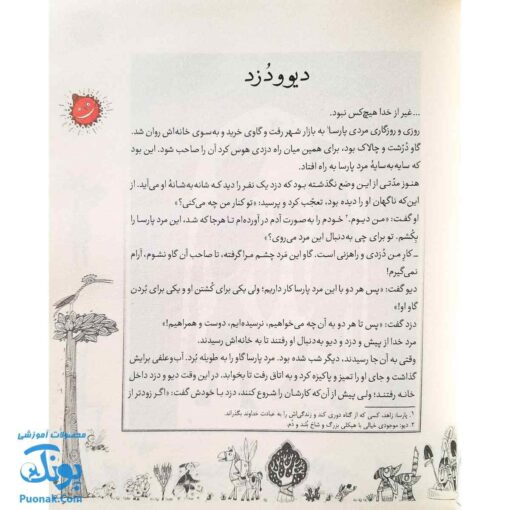 دیو و دُزد
...غیر از خدا هیچ‌کس نبود.
روزی و روزگاری مردی پارسا۱ به بازار شهر رفت و گاوی خرید و به‌سوی خانه‌اش روان شد.
گاو دُرُشت و چالاک بود، برای همین میان راه دزدی هوس کرد آن را صاحب شود. این بود
که سایه‌به‌سایهٔ مرد پارسا به راه افتاد.
هنوز مدّتی از این وضع نگذشته بود که دزد یک نفر را دید که شانه‌به‌شانهٔ او می‌آید. از
این‌که ناگهان او را دیده بود، تعجّب کرد و پرسید: «تو کنار من چه می‌کنی؟»
او گفت: «من دیوم.۲ خودم را به‌صورت آدم در آورده‌ام تا هرجا که شد، این مرد پارسا را
بِکُشم. تو برای چی به‌دنبال این مرد می‌روی؟»
ـ کارِ من دُزدی و راهزنی است. گاو این مَرد چشم مرا گرفته، تا صاحب آن گاو نشوم، آرام
نمی‌گیرم!
دیو گفت: «پس هر دو با این مرد پارسا کار داریم؛ ولی یکی برای کُشتن او و یکی برای بُردن
گاو او!»
دزد گفت: «پس تا هر دو به آن‌چه می‌خواهیم، نرسیده‌ایم، دوست و همراهیم!»
مرد خدا از پیش و دزد و دیو به‌دنبال او رفتند تا به خانه‌اش رسیدند.
وقتی به آن‌جا رسیدند، دیگر شب شده بود. مرد پارسا گاو را به طویله بُرد. آب‌وعلفی برایش
گذاشت و جای او را تمیز و پاکیزه کرد و به اتاق رفت تا بخوابد. در این وقت دیو و دزد داخل
خانه رفتند؛ ولی پیش از آن‌که کارشان را شروع کنند، دزد با خودش گفت: «اگر زودتر از
۱. پارسا: زاهد، کسی که از گناه دوری کند و زندگی‌اش را به عبادت خداوند بگذراند.
۲. دیو: موجودی خیالی با هیکلی بزرگ و شاخ بلند و دُم.
محصولات آموزشی
پونک
Puonak.com